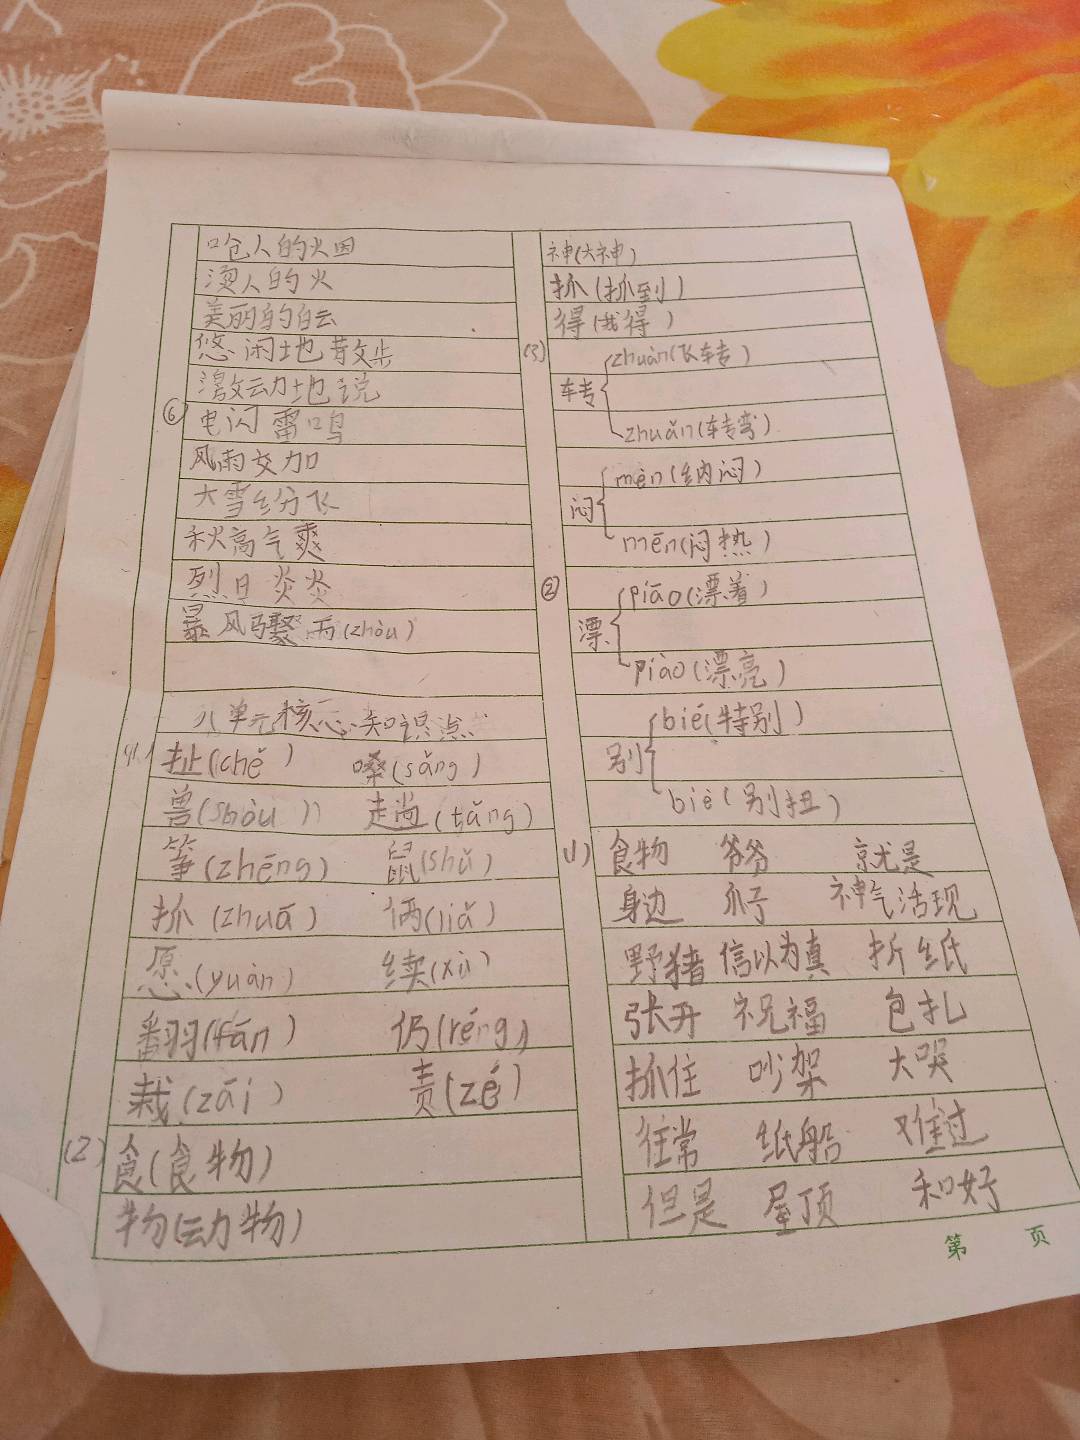 呛人的火因
烫人的火
美丽的白云
悠闲地散步
激动地说
⑥ 电闪雷鸣
风雨交加
大雪纷飞
秋高气爽
烈日炎炎
暴风骤雨(zhòu)
八单元核心知识点
扯(chě) 嗓(sǎng)
兽(shòu) 趟(tǎng)
筝(zhēng) 鼠(shǔ)
抓(zhuā) 俩(liǎ)
愿(yuàn) 续(xù)
翻(fān) 仍(réng)
栽(zāi) 责(zé)
(2) 食(食物)
物(动物)
神(大神)
抓(抓到)
得(我得)
(3) zhuàn(飞转)
转
zhuǎn(转弯)
mèn(纳闷)
闷
mēn(闷热)
② piāo(漂着)
漂
piào(漂亮)
bié(特别)
别
biè(别扭)
(1) 食物 爷爷 就是
身边 爪子 神气活现
野猪 信以为真 折纸
张开 祝福 包扎
抓住 吵架 大哭
往常 纸船 难过
但是 屋顶 和好
第 页